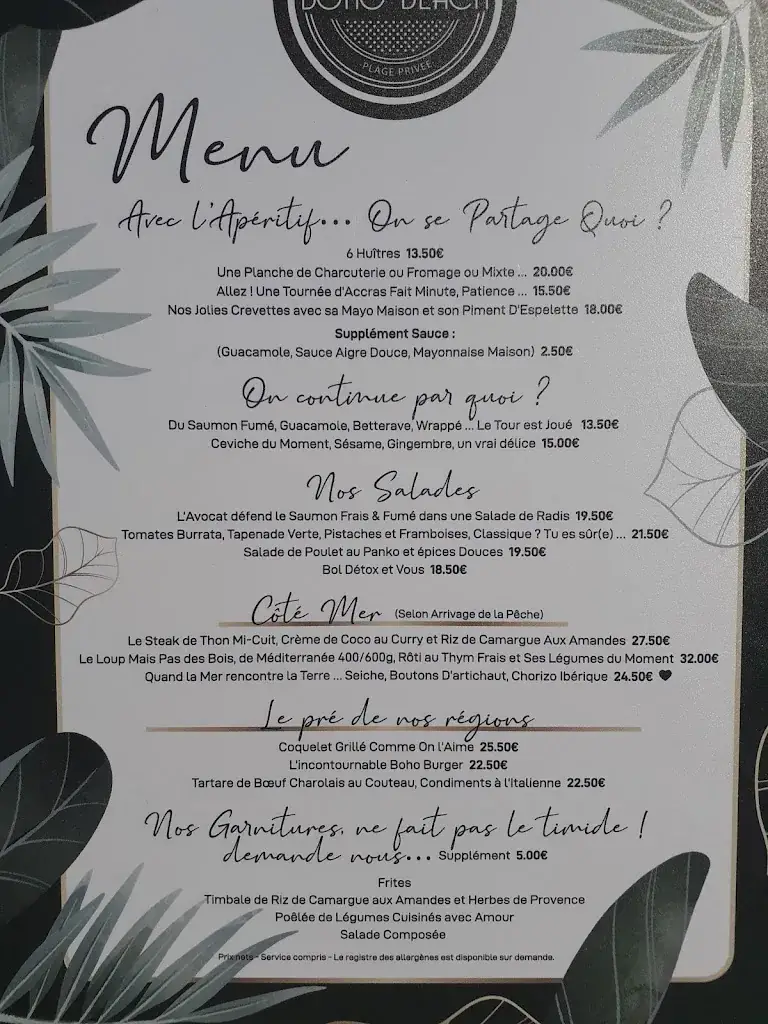 BOHO BEACH
PLAGE PRIVÉE
Menu
Avec l'Apéritif... On se Partage Quoi ?
6 Huîtres 13.50€
Une Planche de Charcuterie ou Fromage ou Mixte ... 20.00€
Allez ! Une Tournée d'Accras Fait Minute, Patience ... 15.50€
Nos Jolies Crevettes avec sa Mayo Maison et son Piment D'Espelette 18.00€
Supplément Sauce :
(Guacamole, Sauce Aigre Douce, Mayonnaise Maison) 2.50€
On continue par quoi ?
Du Saumon Fumé, Guacamole, Betterave, Wrappé ... Le Tour est Joué 13.50€
Ceviche du Moment, Sésame, Gingembre, un vrai délice 15.00€
Nos Salades
L'Avocat défend le Saumon Frais & Fumé dans une Salade de Radis 19.50€
Tomates Burrata, Tapenade Verte, Pistaches et Framboises, Classique ? Tu es sûr(e) ... 21.50€
Salade de Poulet au Panko et épices Douces 19.50€
Bol Détox et Vous 18.50€
Côté Mer (Selon Arrivage de la Pêche)
Le Steak de Thon Mi-Cuit, Crème de Coco au Curry et Riz de Camargue Aux Amandes 27.50€
Le Loup Mais Pas des Bois, de Méditerranée 400/600g, Rôti au Thym Frais et Ses Légumes du Moment 32.00€
Quand la Mer rencontre la Terre ... Seiche, Boutons D'artichaut, Chorizo Ibérique 24.50€ ♥
Le pré de nos régions
Coquelet Grillé Comme On l'Aime 25.50€
L'incontournable Boho Burger 22.50€
Tartare de Bœuf Charolais au Couteau, Condiments à l'Italienne 22.50€
Nos Garnitures, ne fait pas le timide !
demande nous... Supplément 5.00€
Frites
Timbale de Riz de Camargue aux Amandes et Herbes de Provence
Poêlée de Légumes Cuisinés avec Amour
Salade Composée
Prix nets - Service compris - Le registre des allergènes est disponible sur demande.